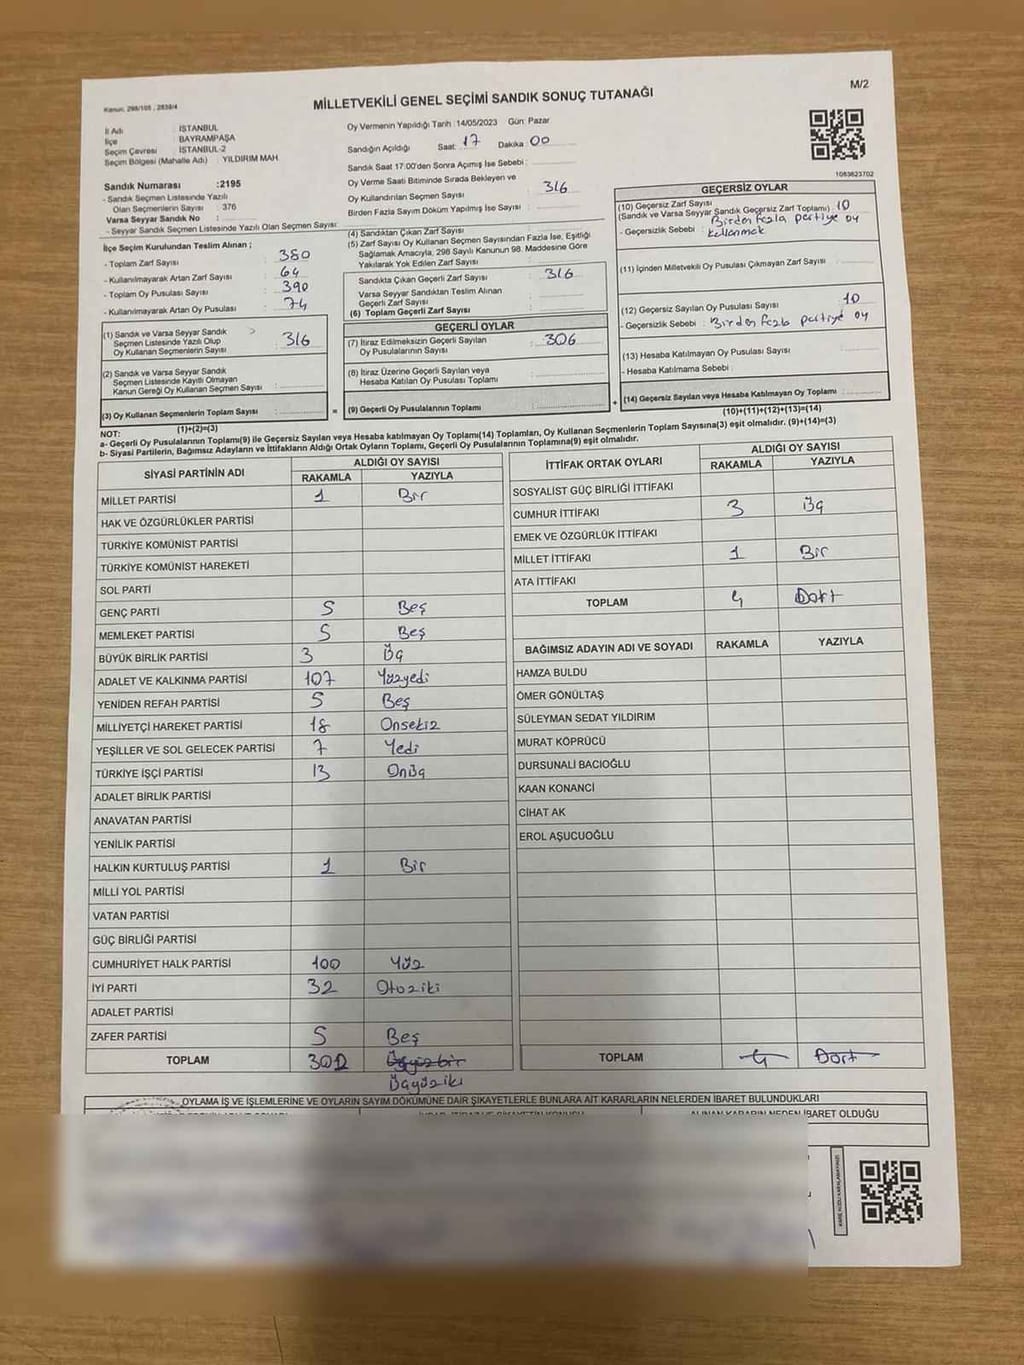 Kanun: 298/105 , 2839/4
M/2
MİLLETVEKİLİ GENEL SEÇİMİ SANDIK SONUÇ TUTANAĞI
İl Adı : İSTANBUL
İlçe : BAYRAMPAŞA
Seçim Çevresi : İSTANBUL-2
Seçim Bölgesi (Mahalle Adı) : YILDIRIM MAH.
Sandık Numarası :2195
- Sandık Seçmen Listesinde Yazılı
Olan Seçmenlerin Sayısı : 376
Varsa Seyyar Sandık No :
- Seyyar Sandık Seçmen Listesinde Yazılı Olan Seçmen Sayısı:
İlçe Seçim Kurulundan Teslim Alınan ;
- Toplam Zarf Sayısı : 380
- Kullanılmayarak Artan Zarf Sayısı : 64
- Toplam Oy Pusulası Sayısı : 390
- Kullanılmayarak Artan Oy Pusulası : 74
(1) Sandık ve Varsa Seyyar Sandık
Seçmen Listesinde Yazılı Olup
Oy Kullanan Seçmenlerin Sayısı : 316
(2) Sandık ve Varsa Seyyar Sandık
Seçmen Listesinde Kayıtlı Olmayan
Kanun Gereği Oy Kullanan Seçmen Sayısı :
(3) Oy Kullanan Seçmenlerin Toplam Sayısı :
(1)+(2)=(3)
Oy Vermenin Yapıldığı Tarih :14/05/2023 Gün: Pazar
Sandığın Açıldığı Saat: 17 Dakika 00
Sandık Saat 17:00'den Sonra Açımış İse Sebebi :
Oy Verme Saati Bitiminde Sırada Bekleyen ve
Oy Kullandırılan Seçmen Sayısı : 316
Birden Fazla Sayım Döküm Yapılmış İse Sayısı :
(4) Sandıktan Çıkan Zarf Sayısı :
(5) Zarf Sayısı Oy Kullanan Seçmen Sayısından Fazla İse, Eşitliği
Sağlamak Amacıyla, 298 Sayılı Kanunun 98. Maddesine Göre
Yakılarak Yok Edilen Zarf Sayısı :
Sandıkta Çıkan Geçerli Zarf Sayısı : 316
Varsa Seyyar Sandıktan Teslim Alınan
Geçerli Zarf Sayısı :
(6) Toplam Geçerli Zarf Sayısı :
GEÇERLİ OYLAR
(7) İtiraz Edilmeksizin Geçerli Sayılan
Oy Pusulalarının Sayısı : 306
(8) İtiraz Üzerine Geçerli Sayılan veya
Hesaba Katılan Oy Pusulası Toplamı :
=
(9) Geçerli Oy Pusulalarının Toplamı :
+
1083823702
GEÇERSİZ OYLAR
(10) Geçersiz Zarf Sayısı
(Sandık ve Varsa Seyyar Sandık Geçersiz Zarf Toplamı) : 10
- Geçersizlik Sebebi : Birden fazla partiye oy
kullanmak
(11) İçinden Milletvekili Oy Pusulası Çıkmayan Zarf Sayısı :
(12) Geçersiz Sayılan Oy Pusulası Sayısı : 10
- Geçersizlik Sebebi : Birden fazla partiye oy
(13) Hesaba Katılmayan Oy Pusulası Sayısı :
- Hesaba Katılmama Sebebi :
(14) Geçersiz Sayılan veya Hesaba Katılmayan Oy Toplamı :
(10)+(11)+(12)+(13)=(14)
NOT:
a- Geçerli Oy Pusulalarının Toplamı(9) ile Geçersiz Sayılan veya Hesaba katılmayan Oy Toplamı(14) Toplamları, Oy Kullanan Seçmenlerin Toplam Sayısına(3) eşit olmalıdır. (9)+(14)=(3)
b- Siyasi Partilerin, Bağımsız Adayların ve İttifakların Aldığı Ortak Oyların Toplamı, Geçerli Oy Pusulalarının Toplamına(9) eşit olmalıdır.
SİYASİ PARTİNİN ADI ALDIĞI OY SAYISI
RAKAMLA YAZIYLA
MİLLET PARTİSİ 1 Bir
HAK VE ÖZGÜRLÜKLER PARTİSİ
TÜRKİYE KOMÜNİST PARTİSİ
TÜRKİYE KOMÜNİST HAREKETİ
SOL PARTİ
GENÇ PARTİ 5 Beş
MEMLEKET PARTİSİ 5 Beş
BÜYÜK BİRLİK PARTİSİ 3 Üç
ADALET VE KALKINMA PARTİSİ 107 Yüzyedi
YENİDEN REFAH PARTİSİ 5 Beş
MİLLİYETÇİ HAREKET PARTİSİ 18 Onsekiz
YEŞİLLER VE SOL GELECEK PARTİSİ 7 Yedi
TÜRKİYE İŞÇİ PARTİSİ 13 Onüç
ADALET BİRLİK PARTİSİ
ANAVATAN PARTİSİ
YENİLİK PARTİSİ
HALKIN KURTULUŞ PARTİSİ 1 Bir
MİLLİ YOL PARTİSİ
VATAN PARTİSİ
GÜÇ BİRLİĞİ PARTİSİ
CUMHURİYET HALK PARTİSİ 100 Yüz
İYİ PARTİ 32 Otuziki
ADALET PARTİSİ
ZAFER PARTİSİ 5 Beş
TOPLAM 302 Üçyüzbir
Üçyüziki
İTTİFAK ORTAK OYLARI ALDIĞI OY SAYISI
RAKAMLA YAZIYLA
SOSYALİST GÜÇ BİRLİĞİ İTTİFAKI
CUMHUR İTTİFAKI 3 Üç
EMEK VE ÖZGÜRLÜK İTTİFAKI
MİLLET İTTİFAKI 1 Bir
ATA İTTİFAKI
TOPLAM 4 Dört
BAĞIMSIZ ADAYIN ADI VE SOYADI RAKAMLA YAZIYLA
HAMZA BULDU
ÖMER GÖNÜLTAŞ
SÜLEYMAN SEDAT YILDIRIM
MURAT KÖPRÜCÜ
DURSUNALİ BACIOĞLU
KAAN KONANCİ
CİHAT AK
EROL AŞUCUOĞLU
TOPLAM 4 Dört
OYLAMA İŞ VE İŞLEMLERİNE VE OYLARIN SAYIM DÖKÜMÜNE DAİR ŞİKAYETLERLE BUNLARA AİT KARARLARIN NELERDEN İBARET BULUNDUKLARI
ALINAN KARARIN NEDEN İBARET OLDUĞU